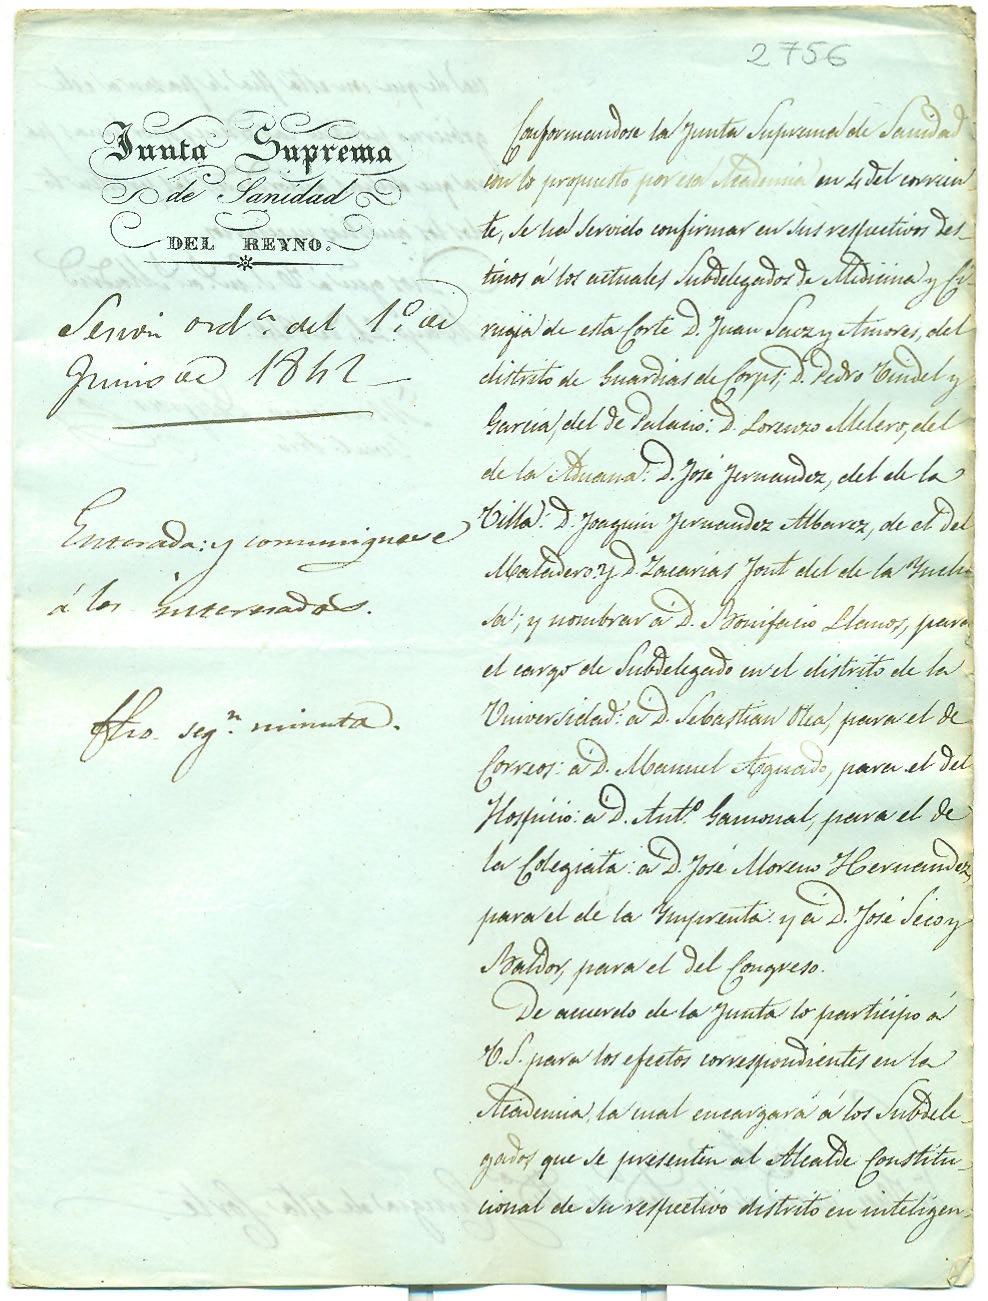 2756
Junta Suprema
de Sanidad
DEL REYNO.
Sesion ord.ª del 1.º de
Junio de 1842
Enterada: y comuniquese
á los interesados.
fho. seg.n minuta.
Conformandose la Junta Suprema de Sanidad
con lo propuesto por esa Academia en 4 del corrien-
te, se ha servido confirmar en sus respectivos des-
tinos á los actuales Subdelegados de Medicina y Ci-
rugia de esta Corte D. Juan Saez y Amores, del
distrito de Guardias de Corps; D. Pedro Vindel y
Garcia, del de Palacio: D. Lorenzo Melero, del
de la Aduana: D. José Fernandez, del de la
Villa: D. Joaquin Fernandez Albarez, de el del
Matadero: y D. Zacarias Font del de la Ynclu-
sa; y nombrar á D. Bonifacio Llanos, para
el cargo de Subdelegado en el distrito de la
Universidad: á D. Sebastian Olea, para el de
Correos: á D. Manuel Aguado, para el del
Hospicio: á D. Ant.º Gamonal, para el de
la Colegiata: á D. José Moreno Hernandez,
para el de la Ymprenta: y á D. José Seco y
Baldor, para el del Congreso.
De acuerdo de la Junta lo participo á
V. S. para los efectos correspondientes en la
Academia, la cual encargará á los Subdele-
gados que se presenten al Alcalde Constitu-
cional de su respectivo distrito en inteligen-